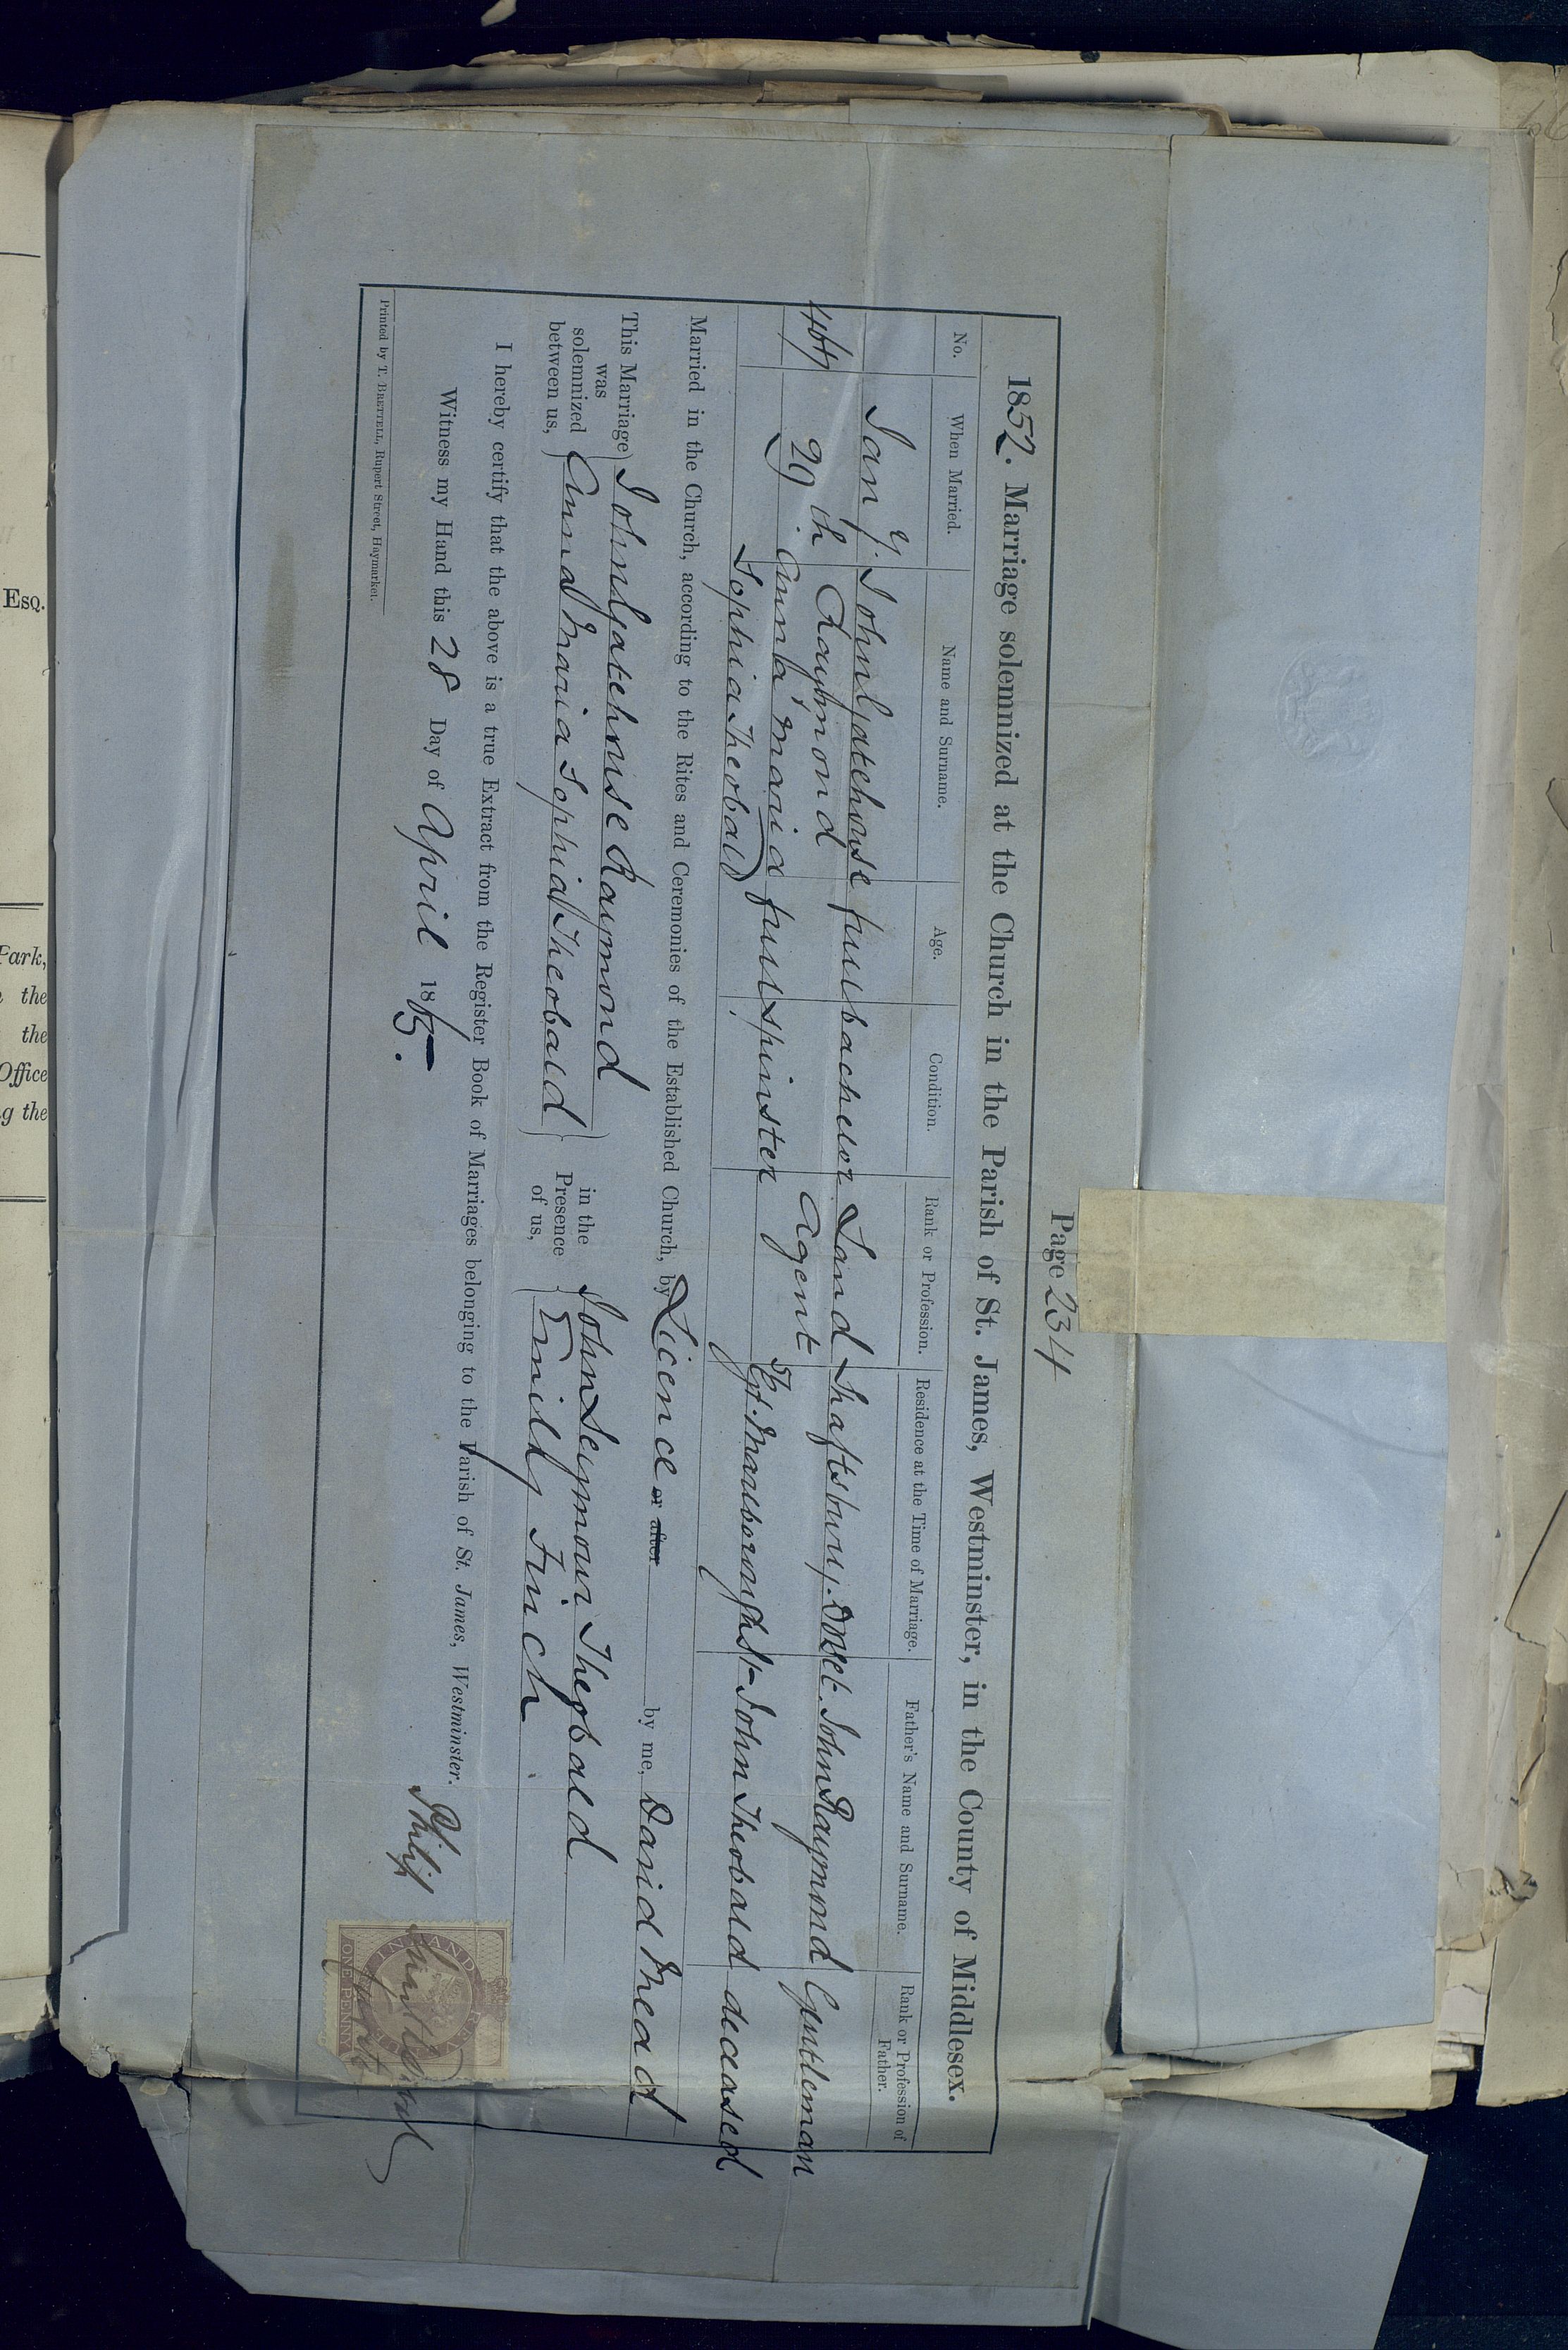 Page 234
1852. Marriage solemnized at the Church in the Parish of St. James, Westminster, in the County of Middlesex.
No. When Married. Name and Surname. Age. Condition. Rank or Profession. Residence at the Time of Marriage. Father's Name and Surname. Rank or Profession of Father.
467 Jan y. 29th John Gatehouse Raymond full bachelor Land Agent Shaftsbury. Dorset. John Raymond Gentleman
Anna Maria Sophia Theobald full spinster Gt. Marlborough St John Theobald deceased
Married in the Church, according to the Rites and Ceremonies of the Established Church, by Licence or after by me, David Mead
This Marriage was solemnized between us, John Gatehouse Raymond
Anna Maria Sophia Theobald
in the Presence of us, John Seymour Theobald
Emily Finch
I hereby certify that the above is a true Extract from the Register Book of Marriages belonging to the Parish of St. James, Westminster.
Witness my Hand this 28 Day of April 18
Philip
INLAND
ONE PENNY
Printed by T. BRETTELL, Rupert Street, Haymarket.
Esq.
Park,
the
the
Office
the